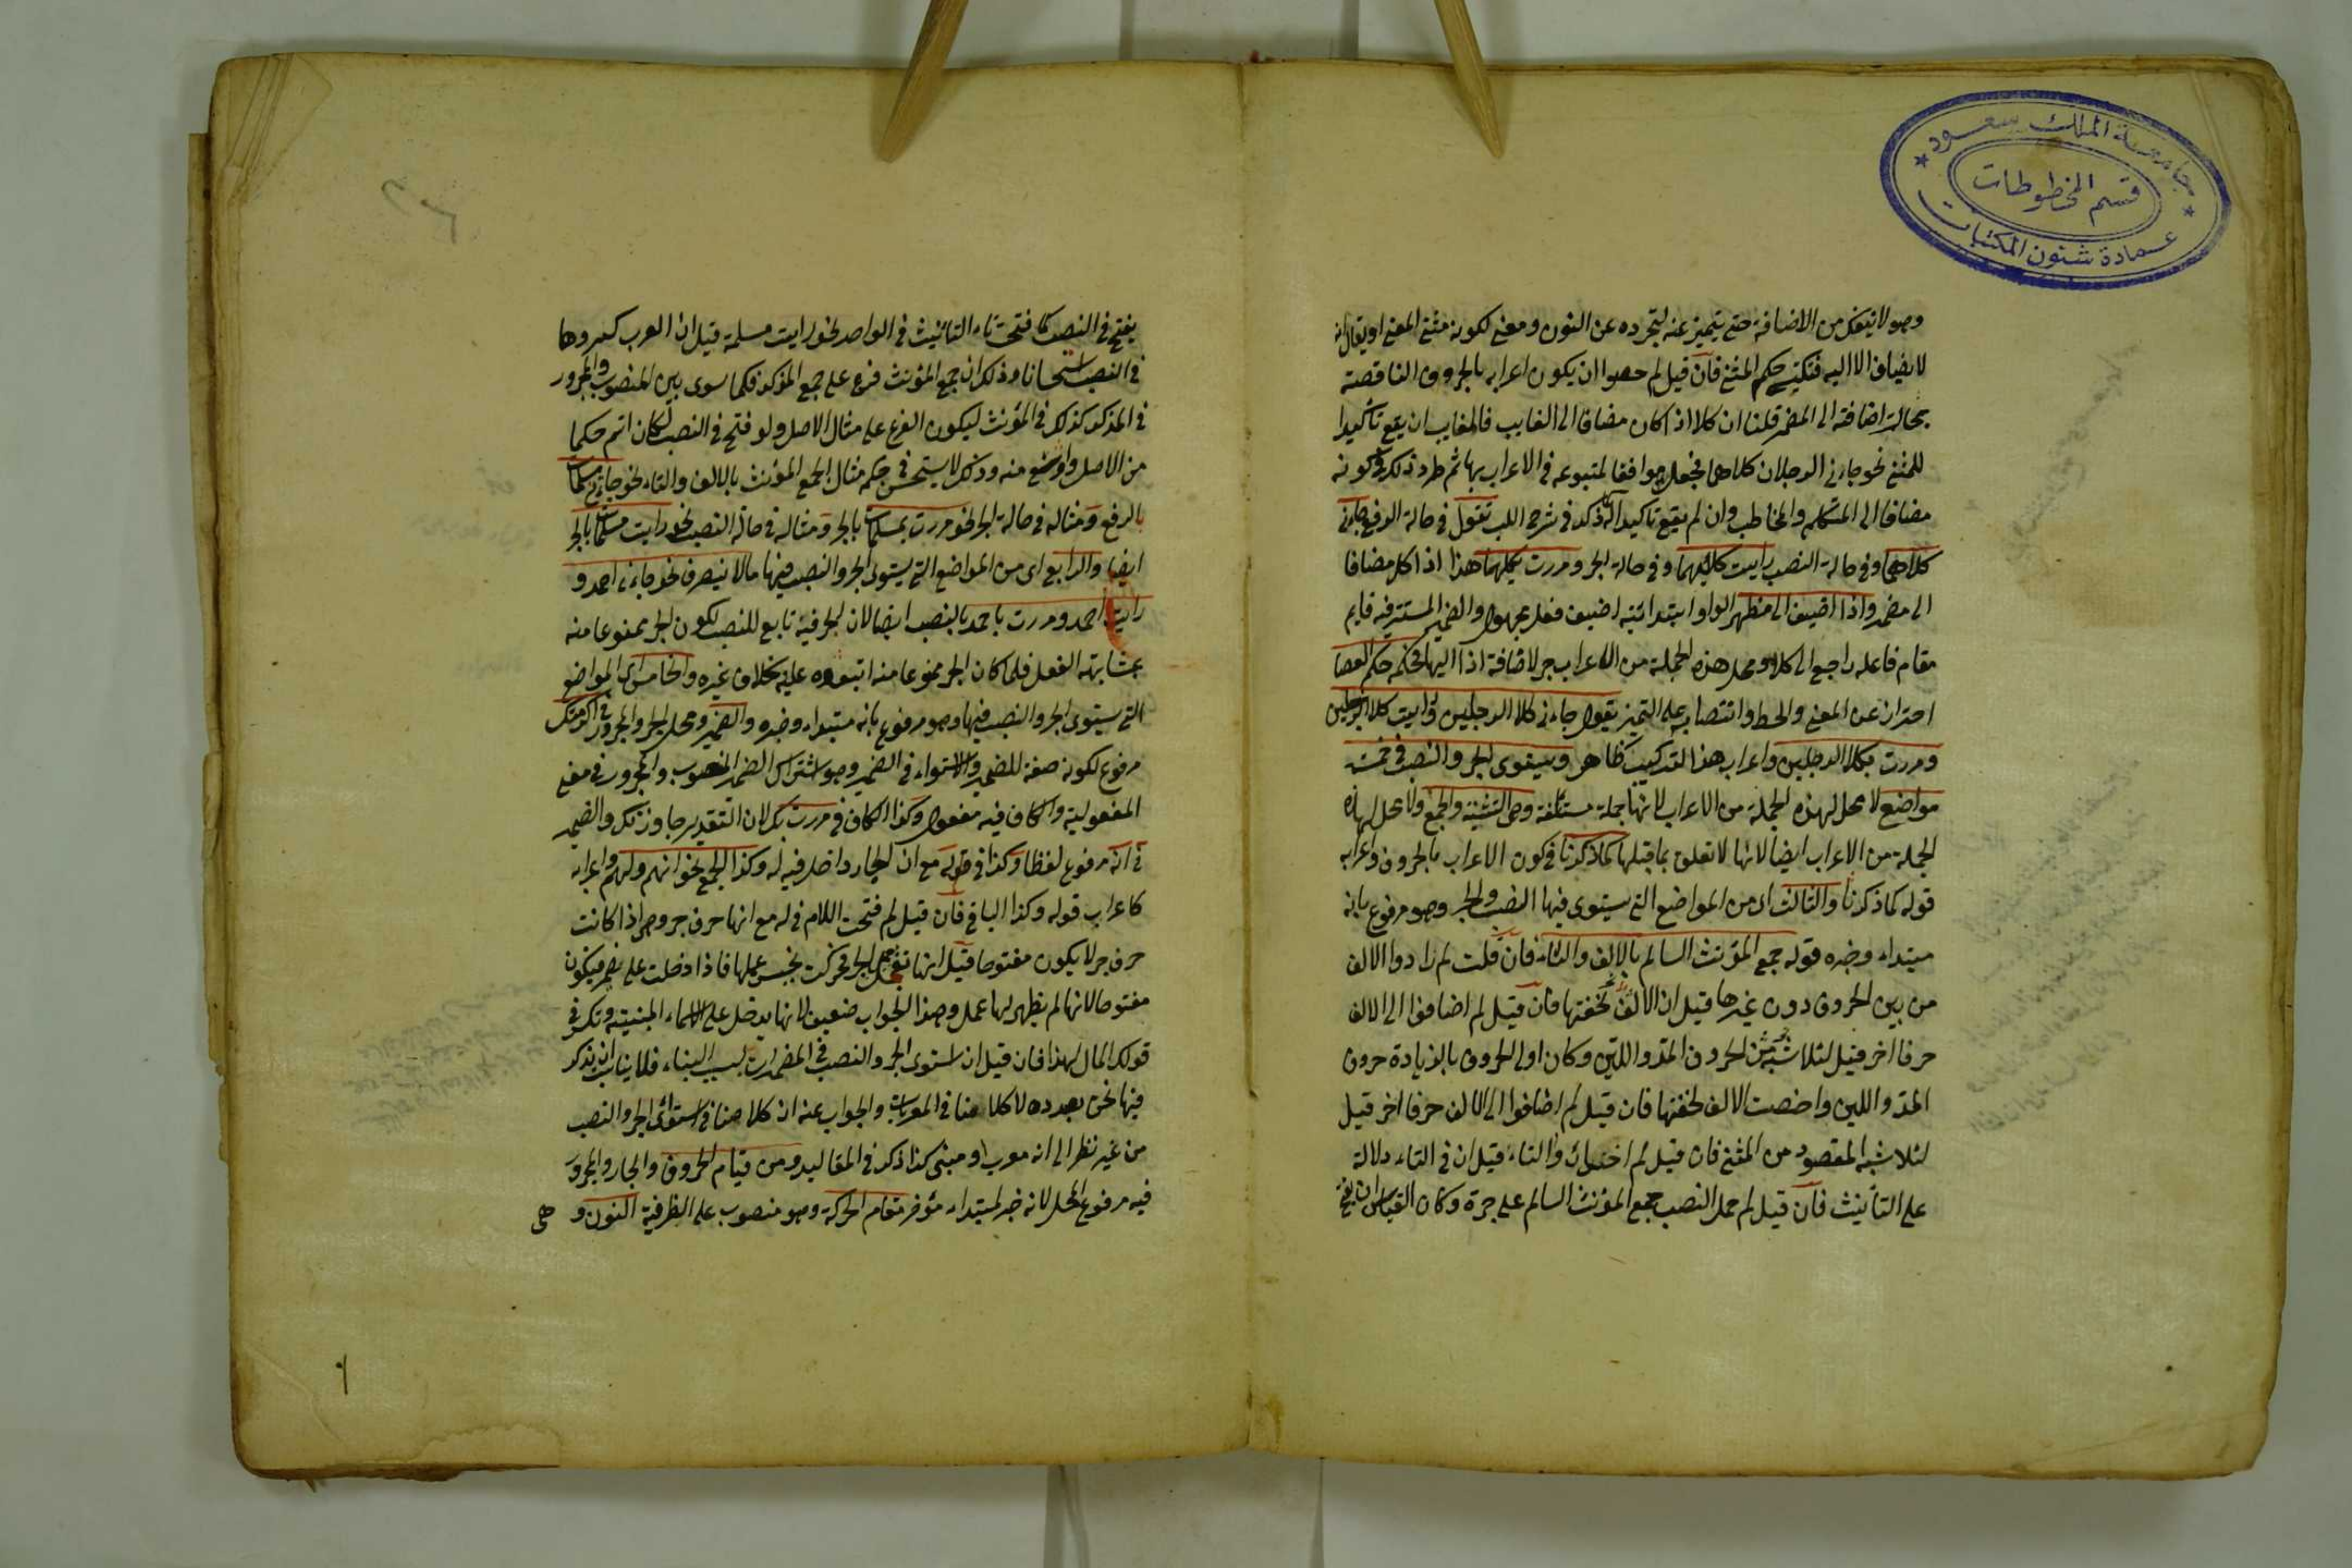 جامعة الملك سعود
قسم المخطوطات
عمادة شئون المكتبات
وهو لا ينفك من الاضافة حتى يتميز عنه لتجرده عن النون ومعنى لكونه مثنى المعنى او يقال انه
لا يضاف الا اليه حكم المثنى فان قيل لم خصوا ان يكون اعرابه بالحروف الناقصة
بحالة اضافته الى المضمر قلنا ان كلا اذا كان مضافا الى الغايب فالغايب ان يقع تأكيدا
للمثنى نحو جاءنى الرجلان كلاهما فجعل موافقا لمتبوعه فى الاعراب بها ثم طرد ذلك فى كونه
مضافا الى المتكلم والمخاطب وان لم يقع تاكيدا كذا ذكر فى شرح اللب تقول فى حالة الرفع جاءنى
كلاهما وفى حالة النصب رايت كليهما وفى حالة الجر ومررت بكليهما هذا اذا كان مضافا
الى مضمر واذا اضيف الى مظهر الواو ابتدائية اضيف فعل مجهول والضمير المستتر فيه قايم
مقام فاعله راجع الى كلا ومحل هذه الجملة من الاعراب جر لاضافة اذا اليها فحكمه حكم العصا
احتراز عن المعنى والخط وانتصابه على التميز تقول جاءنى كلا الرجلين ورايت كلا الرجلين
ومررت بكلا الرجلين واعراب هذا التركيب ظاهر ويستوى الجر والنصب فى خمسة
مواضع لا محل لهذه الجملة من الاعراب لانها جملة مستأنفة وهى التثنية والجمع ولا محل لهذه
الجملة من الاعراب ايضا لانها لا تعلق بما قبلها كما ذكرنا فى كون الاعراب بالحروف واعرابه
قوله كما ذكرنا والثالث اى من المواضع التى يستوى فيها النصب والجر وهو مرفوع بانه
مبتداء وخبره قوله جمع المؤنث السالم بالالف والتاء فان قلت لم زادوا الالف
من بين الحروف دون غيرها قيل ان الالف لخفتها فان قيل لم اضافوا الى الالف
حرفا اخر قيل لئلا من الحروف المد واللين وكان اولى الحروف بالزيادة حروف
المد واللين واختصت الالف لخفتها فان قيل لم اضافوا الى الالف حرفا اخر قيل
لئلا شبه المقصود من المثنى فان قيل لم اختيرت التاء قيل ان فى التاء دلالة
على التأنيث فان قيل لم حمل النصب جمع المؤنث السالم على جره وكان القياس ان يفتح
يفتح فى النصب كما فتحت تاء التانيث فى الواحد نحو رايت مسلمة قيل ان العرب كسروها
فى النصب استحسانا وذلك ان جمع المؤنث فرع على جمع المذكر فكما سوى بين المنصوب والمجرور
فى المذكر كذلك فى المؤنث ليكون الفرع على مثال الاصل ولو فتح فى النصب لكان اتم حكما
من الاصل واوسع منه وذلك لا يستحسن فى حكمه مثال الجمع المؤنث بالالف والتاء نحو جاءنى مسلمات
بالرفع ومثاله فى حالة الجر نحو مررت بمسلمات بالجر ومثاله فى حالة النصب نحو رايت مسلمات بالجر
ايضا والرابع اى من المواضع التى يستوى الجر والنصب فيها ما لا ينصرف نحو جاءنى احمد و
رايت احمد ومررت باحمد بالنصب ايضا لان الجر فيه تابع للنصب لكون الجر ممنوعا منه
بمشابهته الفعل فلما كان الجر ممنوعا منه اتبعوه عليه بخلاف غيره والخامس اى المواضع
التى يستوى الجر والنصب فيها وهو مرفوع بانه مبتداء وخبره والضمير ومحل الجر والمجرور فى اكرمتك
مرفوع لكونه صفة للضمير والاستواء فى الضمير وهو اشتراك الضمير المنصوب والمجرور فى معنى
المفعولية والكاف فيه مفعول وكذا الكاف فى مررت بك لان التقدير جاوزتك والضمير
فى انه مرفوع لفظا وكذا فى قوله مع ان الجار داخل فيه له وكذا الجمع نحو انهم ولهم واعرابه
كاعراب قوله وكذا الباقى فان قيل لم فتحت اللام فى له مع انها حرف جر وهى اذا كانت
حرف جر لا يكون مفتوحا قيل انها الجر فحركت بجنس عملها فاذا دخلت على مضمر فيكون
مفتوحا لانها لم يظهر لها عمل وهذا الجواب ضعيف لانها يدخل على الاسماء المبنية وتكسر فى
قولك المال لهذا فان قيل ان استوى الجر والنصب فى المضمرات لسبب البناء فلا يناسب ان يذكر
فيما نحن بصدده لا كلامنا فى المعربات والجواب عنه ان كلامنا فى استوائى الجر والنصب
من غير نظر الى انه معرب او مبنى كذا ذكر فى المقاليد ومن قيام الحروف والجار والمجرور
فيه مرفوع المحل لانه خبر لمبتداء مؤخر مقام الحركة وهو منصوب على الظرفية النون و
هى